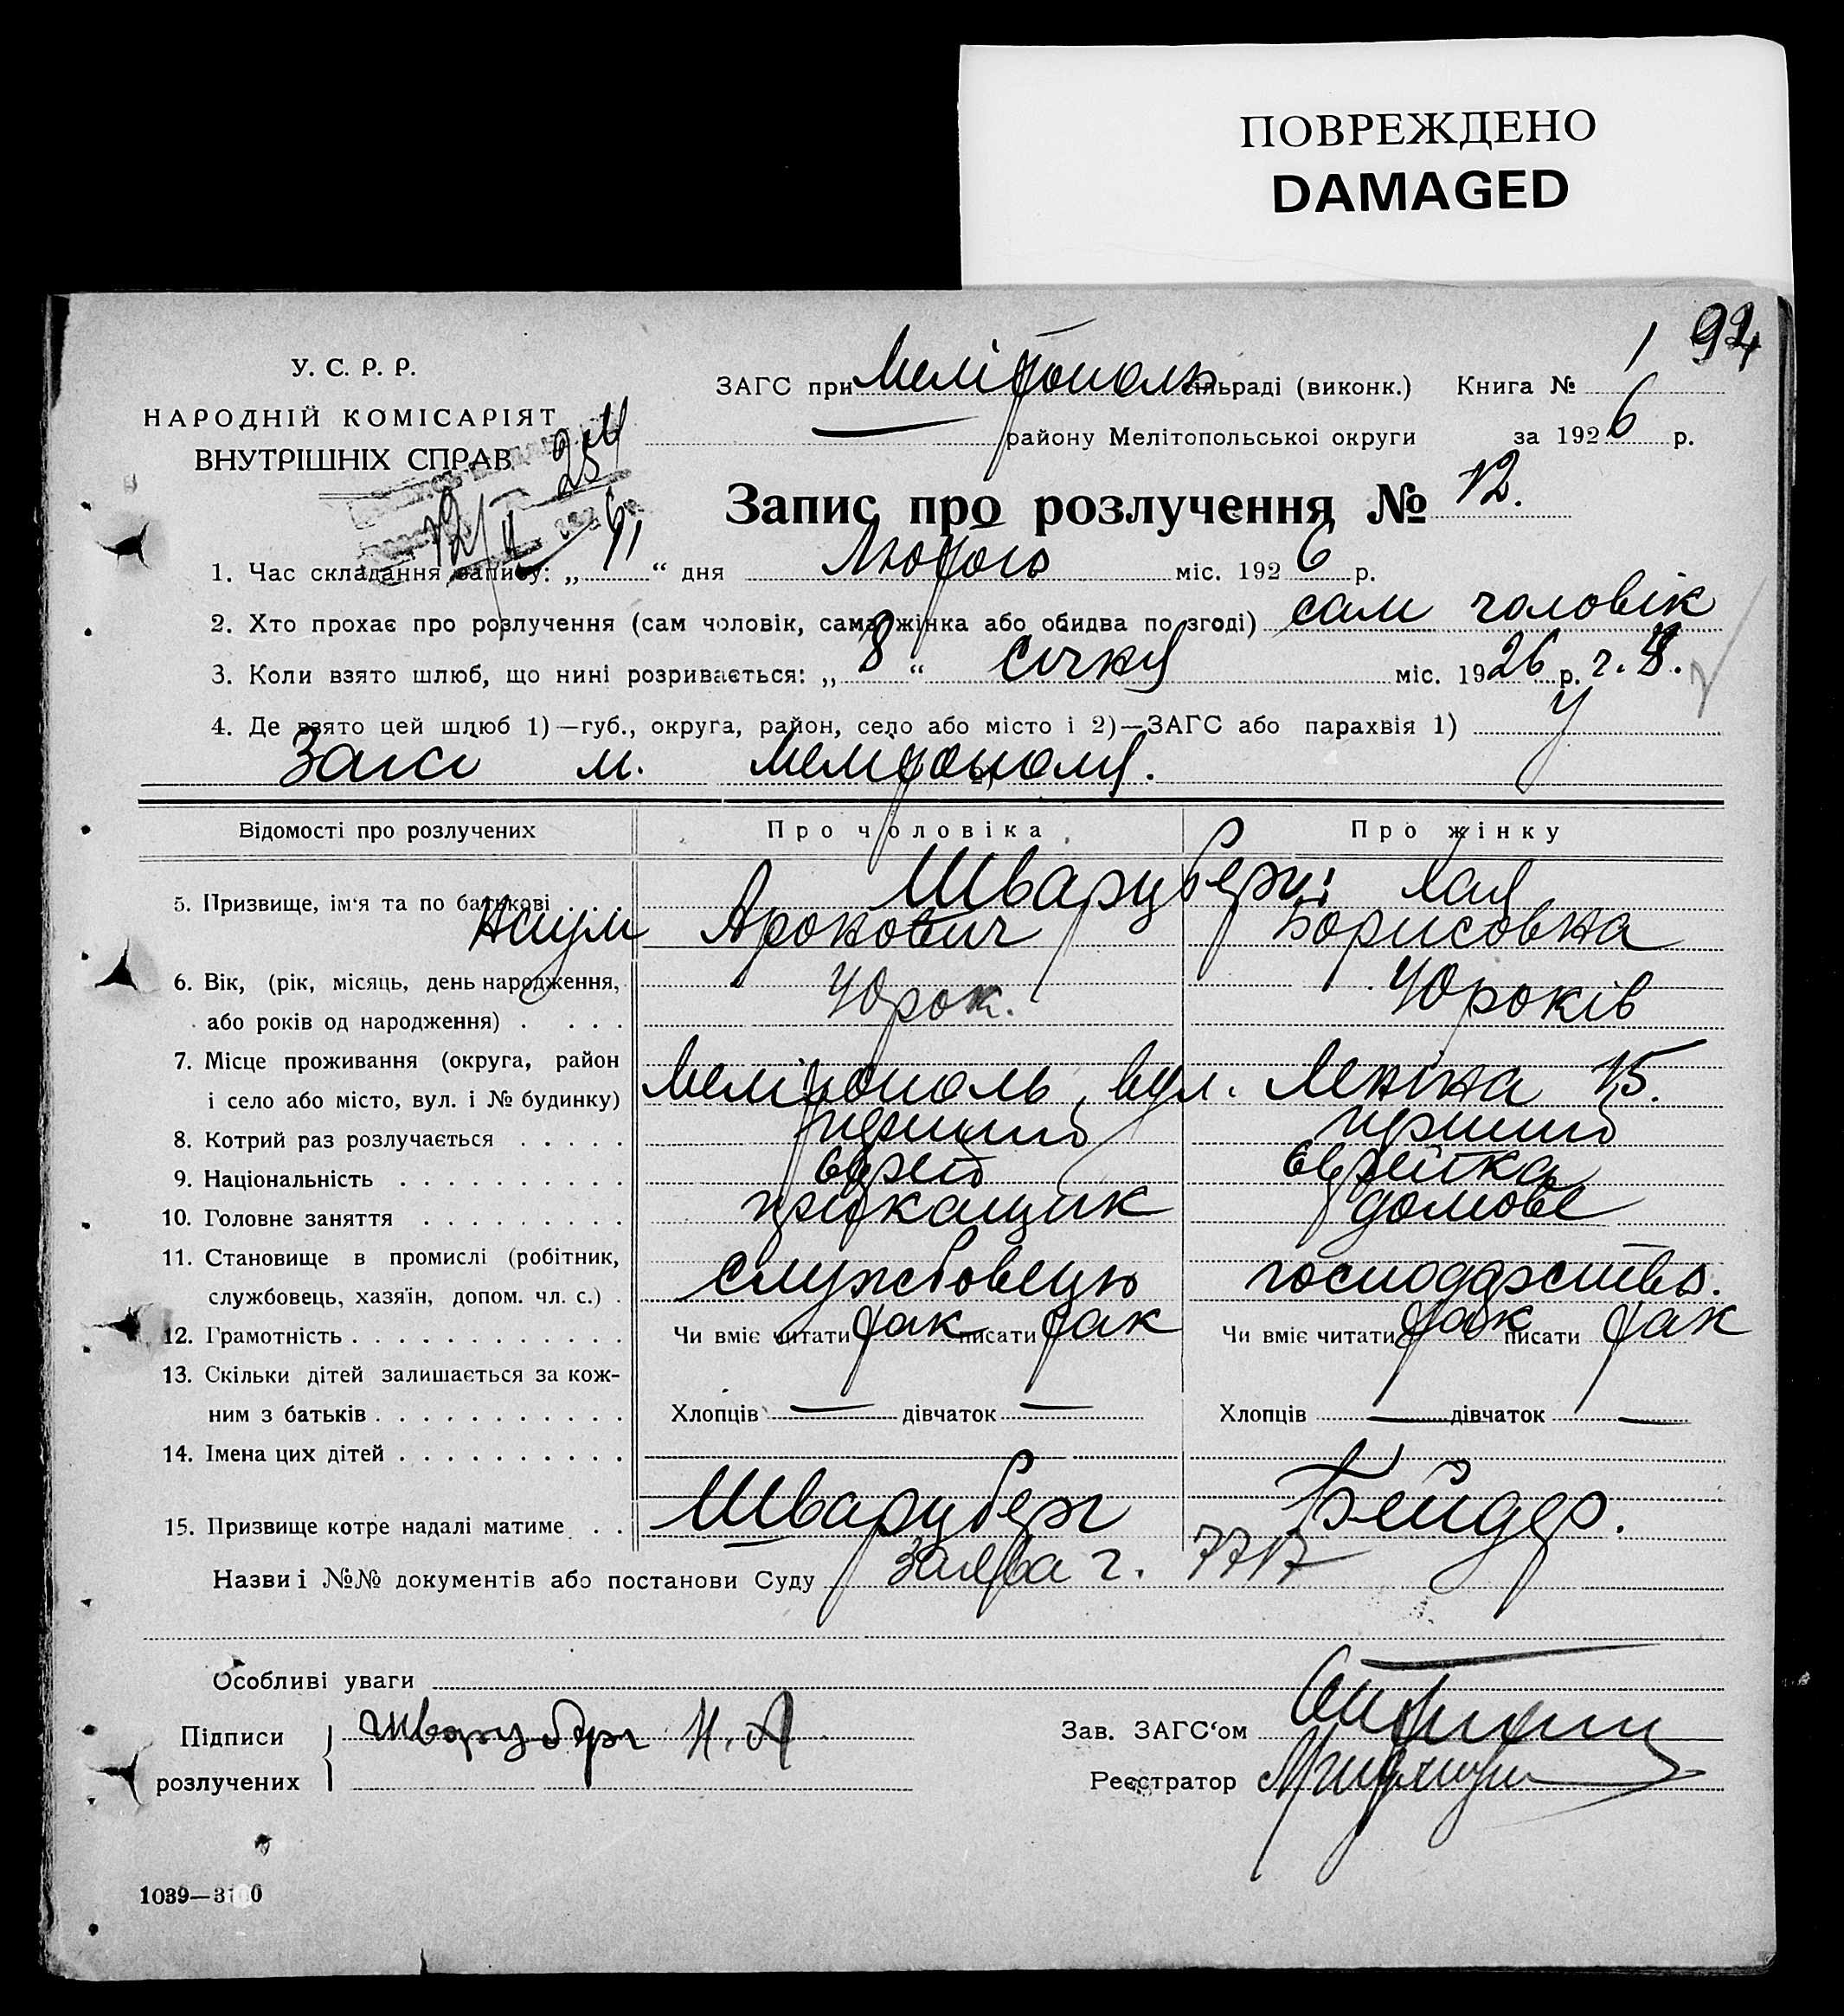 ПОВРЕЖДЕНО
DAMAGED
1 94
У. С. Р. Р.
НАРОДНІЙ КОМІСАРІЯТ
ВНУТРІШНІХ СПРАВ
ЗАГС при Мелітополь сільраді (виконк.) Книга №
— району Мелітопольської округи за 1926 р.
254
12/II 6
Запис про розлучення № 12.
1. Час складання запису: „11“ дня Лютого міс. 1926 р.
2. Хто прохає про розлучення (сам чоловік, сама жінка або обидва по згоді) сам чоловік
3. Коли взято шлюб, що нині розривається: „8“ Січня міс. 1926 р. г. 8.
4. Де взято цей шлюб 1)—губ., округа, район, село або місто і 2)—ЗАГС або парахвія 1) У
Загсі м. Мелітополя.
Відомості про розлучених Про чоловіка Про жінку
5. Призвище, ім'я та по батькові Шварцберг: Хая
Наум Аронович Борисовна
6. Вік, (рік, місяць, день народження,
або років од народження) 40 рок. 40 років
7. Місце проживання (округа, район
і село або місто, вул. і № будинку) Мелітополь, вул. Леніна 15.
8. Котрий раз розлучається перший перший
9. Національність єврей єврейка
10. Головне заняття прикащик домове
11. Становище в промислі (робітник,
службовець, хазяїн, допом. чл. с.) службовець господарство.
12. Грамотність Чи вміє читати так писати так Чи вміє читати так писати так
13. Скільки дітей залишається за кож-
ним з батьків Хлопців — дівчаток — Хлопців — дівчаток —
14. Імена цих дітей
15. Призвище котре надалі матиме Шварцберг Бейдер.
Назви і №№ документів або постанови Суду Заява г. 7717
Особливі уваги
Підписи розлучених Шварцберг Н. А
Зав. ЗАГС'ом
Реєстратор
1039—3100